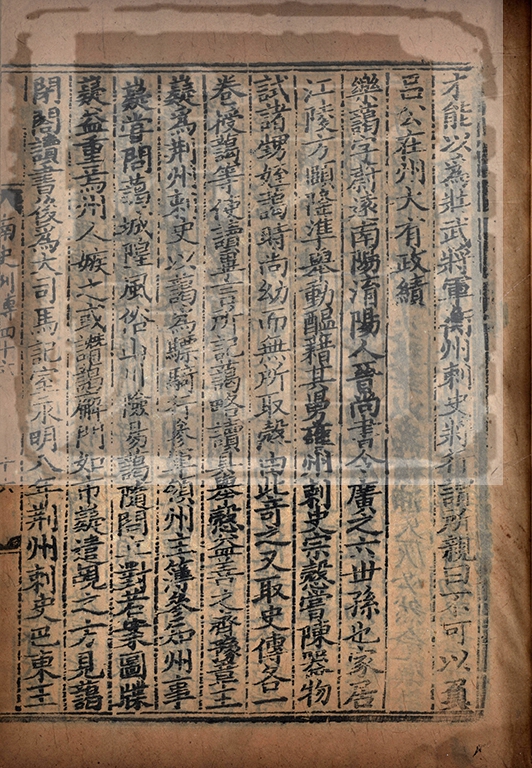 才能以爲壯武將軍衡州刺史將行謂所親曰不可以負
呂公在州大有政績
樂藹字蔚遠南陽淯陽人晉尚書令廣之六世孫也家居
江陵方頤隆準舉動醞藉其舅雍州刺史宗慤嘗陳器物
試諸甥姪藹時尚幼而無所取慤由此奇之又取史傳各一
卷授藹等使讀畢言所記藹略讀具舉慤益善之齊豫章王
嶷爲荊州刺史以藹爲驃騎行參軍領州主簿參知州事
嶷嘗問藹城隍風俗山川險易藹隨問立對若案圖牒
嶷益重焉州人嫉之或譖藹廨門如市嶷遣覘之方見藹
閉閤讀書後爲大司馬記室永明八年荊州刺史巴東王
南史列傳四十六